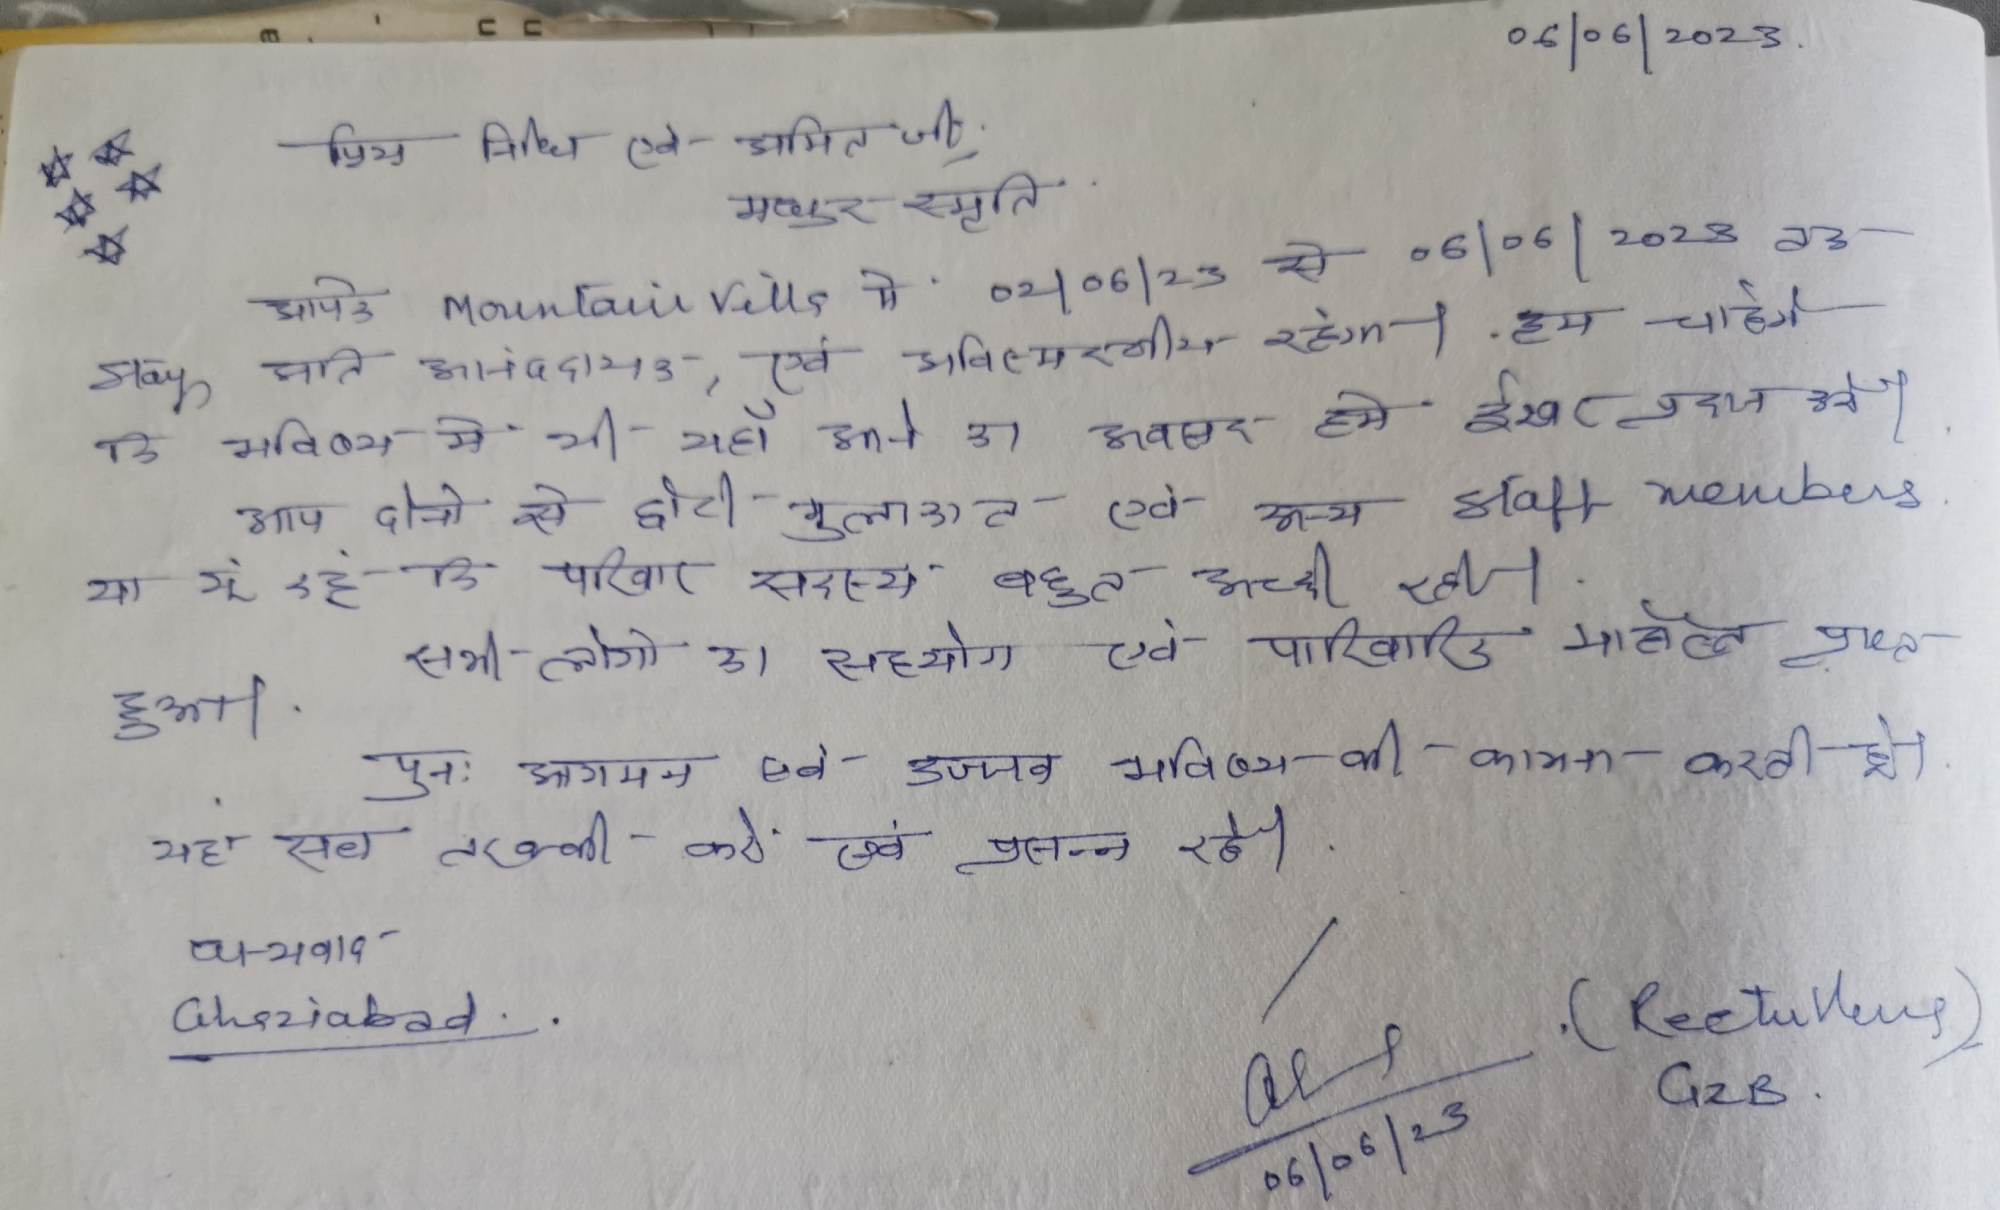 06/06/2023.
प्रिय निधि एवं अमित जी,
मधुर स्मृति
आपके Mountain Villa में 02/06/23 से 06/06/2023 तक
stay अति आनंददायक, एवं अविस्मरणीय रहेगा। हम चाहेंगे
कि भविष्य में भी यहाँ आने का अवसर हमें ईश्वर प्रदान करें।
आप दोनो से छोटी मुलाकात एवं अन्य staff members
या यूं कहें कि परिवार सदस्य बहुत अच्छी रही।
सभी लोगो का सहयोग एवं पारिवारिक माहौल प्राप्त
हुआ।
पुनः आगमन एवं उज्जवल भविष्य की कामना करती हूँ।
यहां सब तरक्की करें एवं प्रसन्न रहें।
धन्यवाद
Ghaziabad.
(Reetu
GZB.
06/06/23